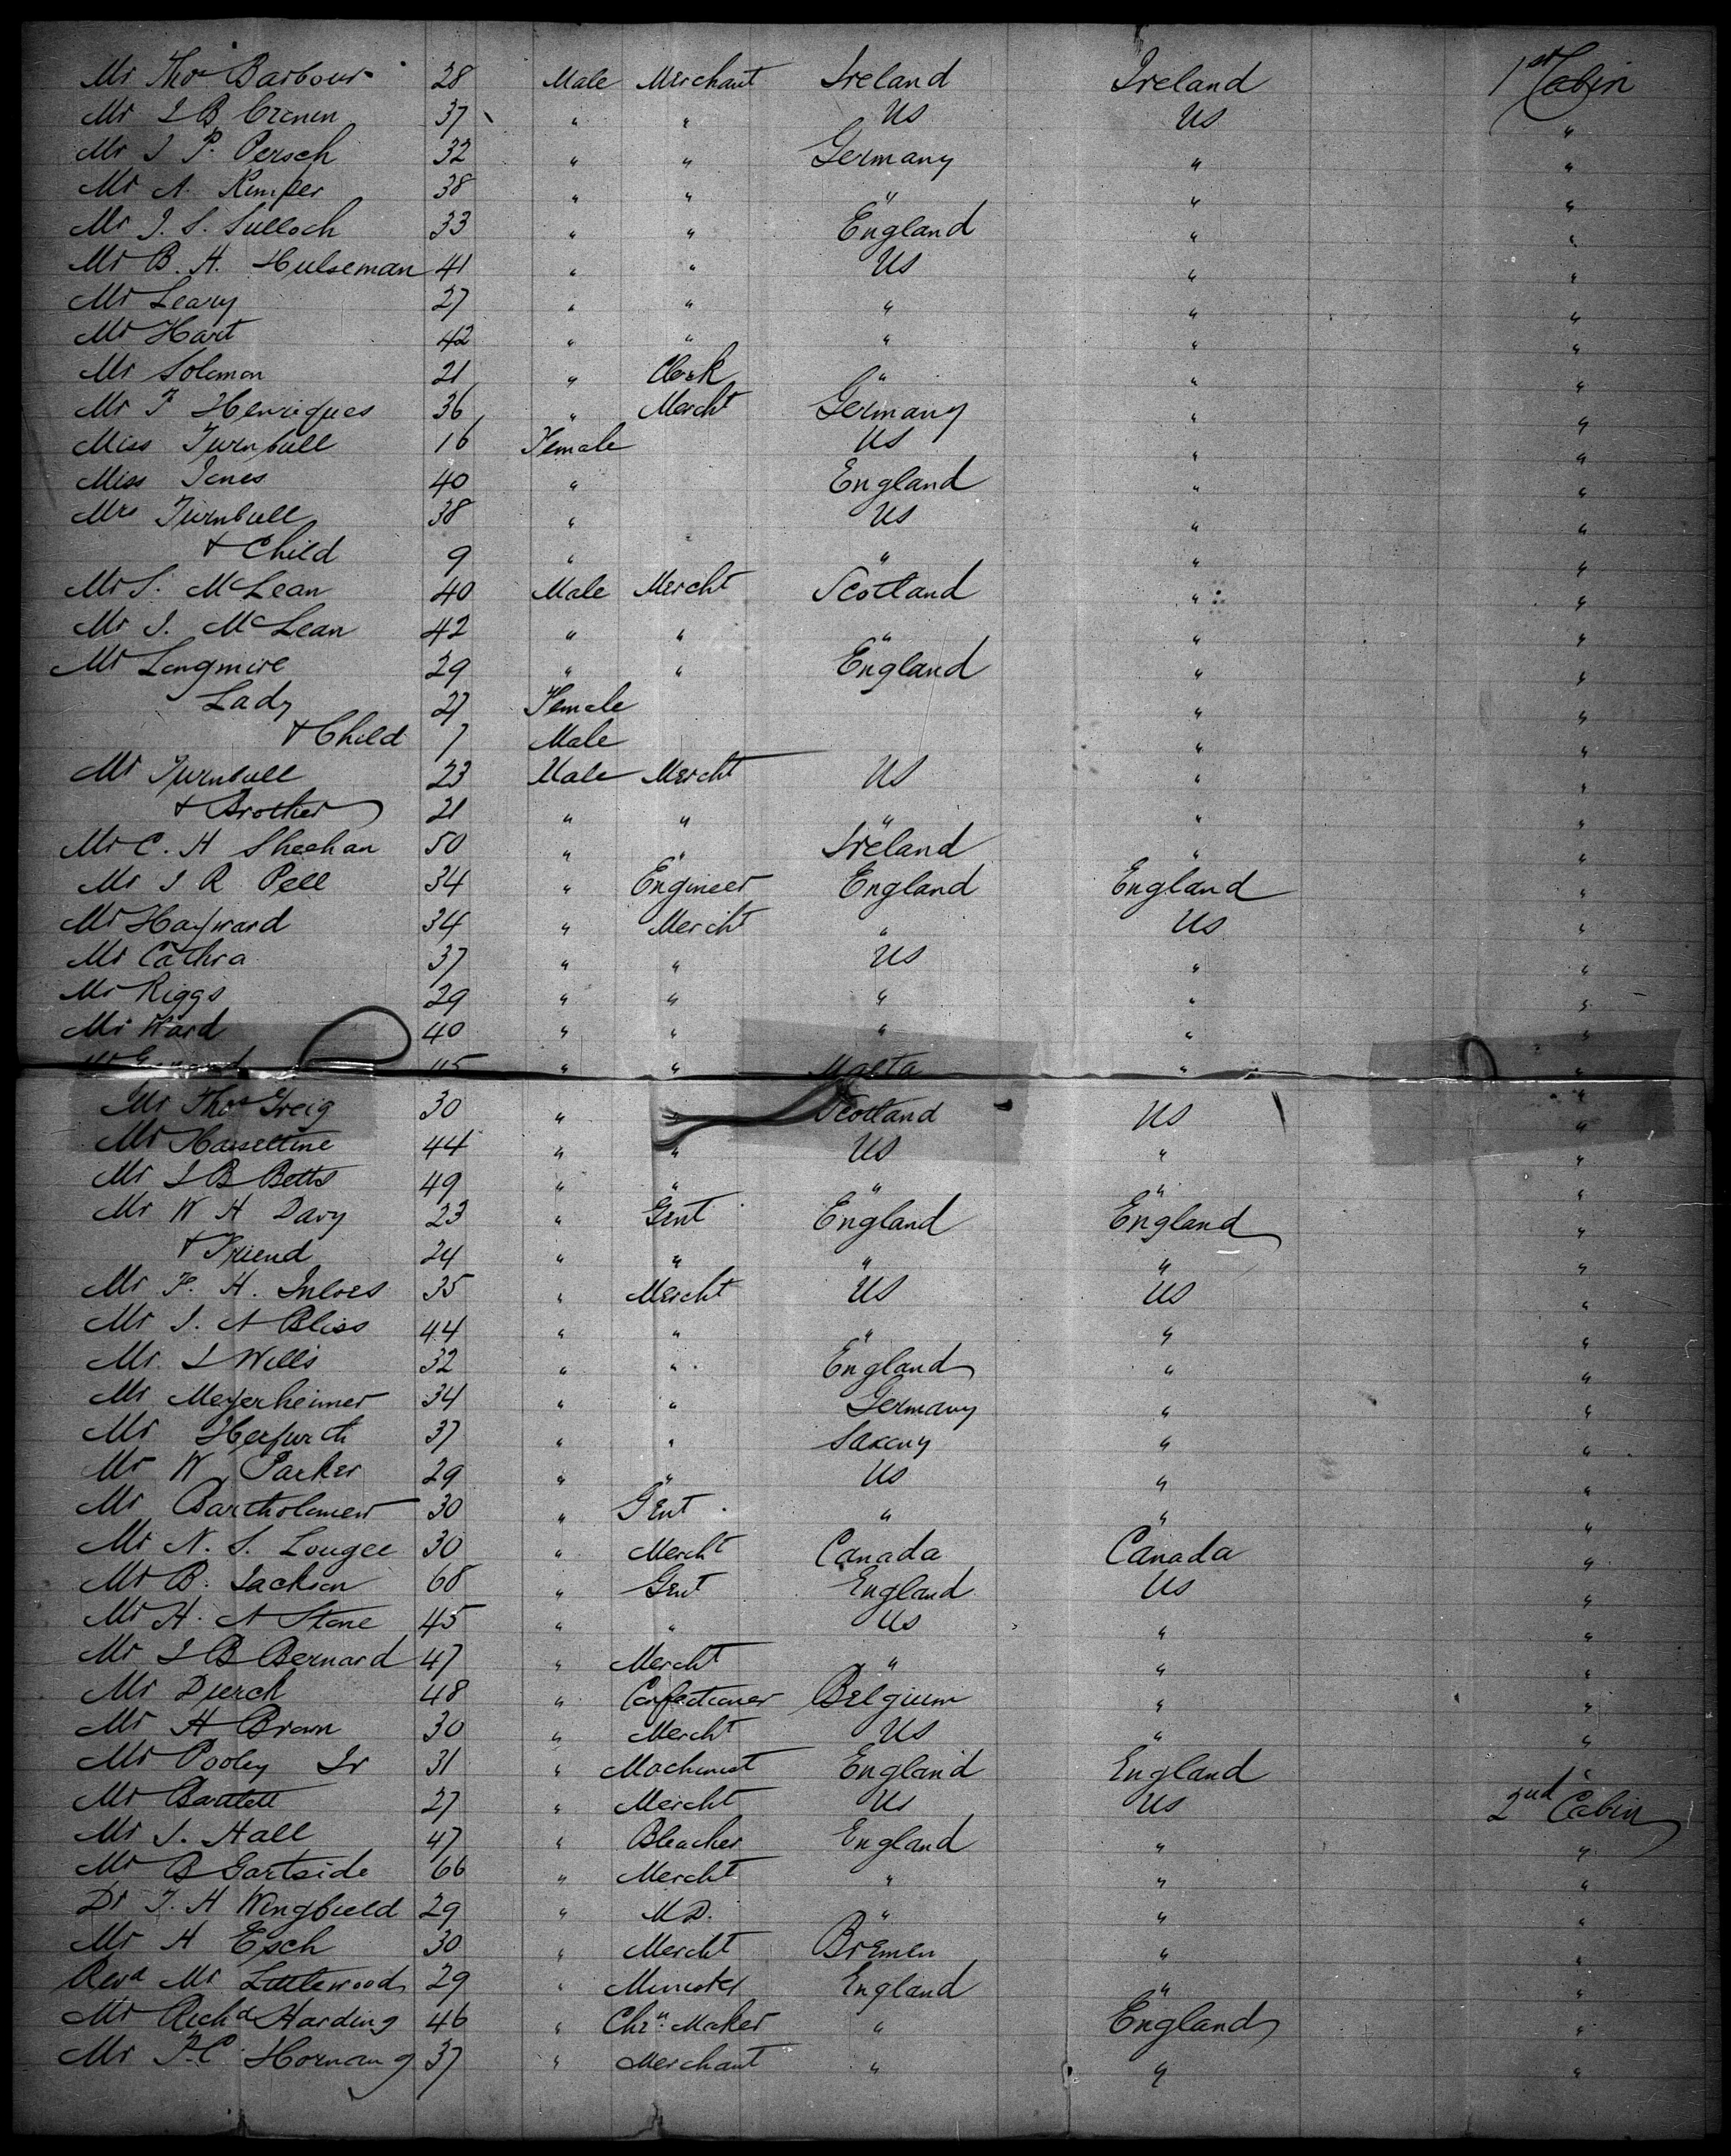 Mr Thos Barbour 28 Male Merchant Ireland Ireland 1st Cabin
Mr I B Cronin 37 " " US US "
Mr I P. Persch 32 " " Germany " "
Mr A. Kemper 38 " " " " "
Mr I. S. Sulloch 33 " " England " "
Mr B. H. Hulseman 41 " " US " "
Mr Leary 27 " " " " "
Mr Hart 42 " " " " "
Mr Soloman 21 " Clerk " " "
Mr F Henriques 36 " Mercht Germany " "
Miss Turnbull 16 Female US " "
Miss Jones 40 " England " "
Mrs Turnbull 38 " US " "
+ Child 9 " " " "
Mr S. McLean 40 Male Mercht Scotland " "
Mr J. McLean 42 " " " " "
Mr Longmire 29 " " England " "
Lady 27 Female " "
+ Child 7 Male " "
Mr Turnbull 23 Male Mercht US " "
+ Brother 21 " " " " "
Mr C. H Sheehan 50 " " Ireland " "
Mr I R Pell 34 " Engineer England England "
Mr Hayward 34 " Mercht " US "
Mr Cathra 37 " " US " "
Mr Riggs 29 " " " " "
Mr Ward 40 " " " " "
45 " " Malta " "
Mr Thos Greig 30 " Scotland US "
Mr Hasseltine 44 " " US " "
Mr I B Betts 49 " " " " "
Mr W H Davy 23 " Gent England England "
+ Friend 24 " " " " "
Mr F. H. Inloes 35 " Mercht US US "
Mr I. A Bliss 44 " " " " "
Mr. I Wills 32 " " England " "
Mr Meyerheimer 34 " " Germany " "
Mr Herfurth 37 " " Saxony " "
Mr W Parker 29 " " US " "
Mr Bartholomew 30 " Gent " " "
Mr N. S. Lougee 30 " Mercht Canada Canada "
Mr B. Jackson 68 " Gent England US "
Mr H. A Stone 45 " " US " "
Mr I B Bernard 47 " Mercht " " "
Mr Durch 48 " Confectioner Belgium " "
Mr H Brown 30 " Mercht US " "
Mr Pooley Jr 31 " Machinist England England "
Mr Bartlett 27 " Mercht US US 2nd Cabin
Mr J. Hall 47 " Bleacher England " "
Mr B Gartside 66 " Mercht " " "
Dr T. H Wingfield 29 " M.D. " " "
Mr H Esch 30 " Mercht Bremen " "
Revd Mr Littlewood 29 " Minister England " "
Mr Richd Harding 46 " Chrn. Maker " England "
Mr P.C. Hornang 37 " Merchant " " "